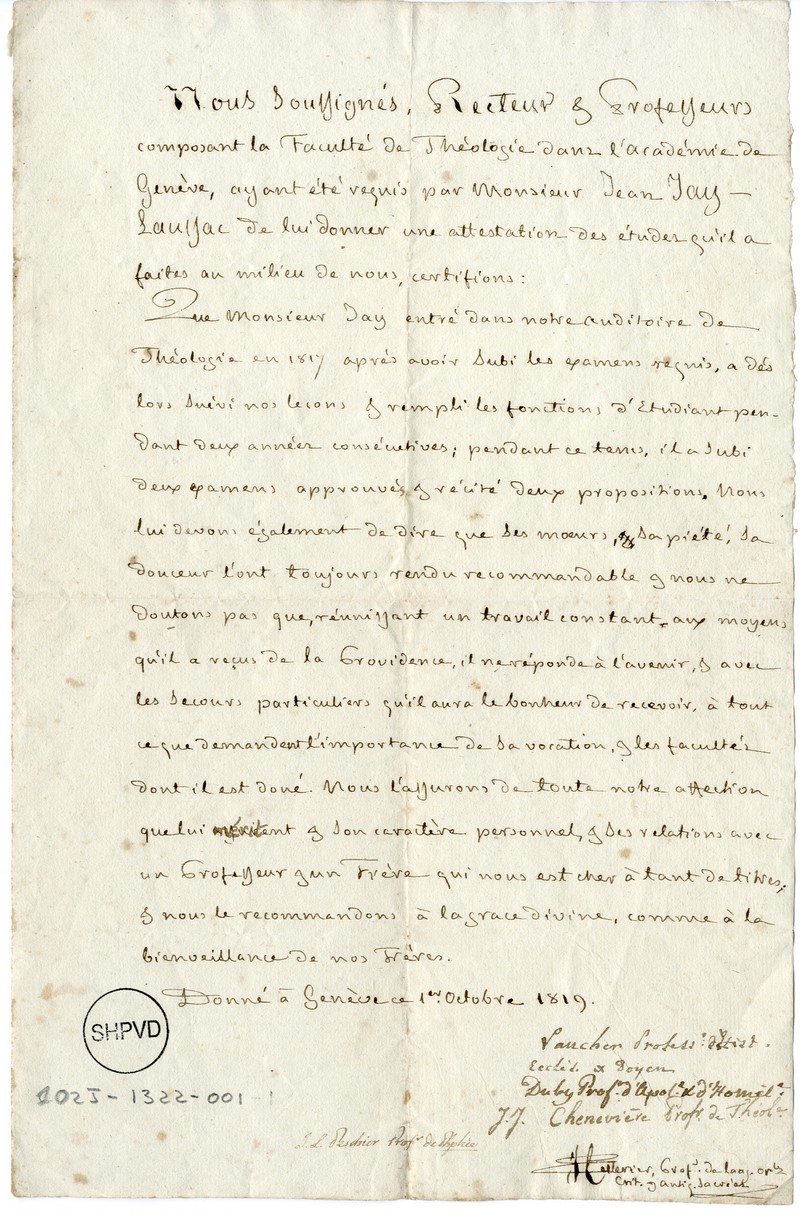 Nous soussignés, Recteur & Professeurs
composant la Faculté de Théologie dans l'académie de
Genève, ayant été requis par Monsieur Jean Jay-
Laussac de lui donner une attestation des études qu'il a
faites au milieu de nous, certifions :
Que Monsieur Jay entré dans notre auditoire de
Théologie en 1817 après avoir subi les examens requis, a dès
lors suivi nos leçons & rempli les fonctions d'Etudiant pen-
dant deux années consécutives; pendant ce tems, il a subi
deux examens approuvés & récité deux propositions. Nous
lui devons également de dire que ses mœurs, sa piété, sa
douceur l'ont toujours rendu recommandable & nous ne
doutons pas que, réunissant un travail constant aux moyens
qu'il a reçus de la Providence, il ne réponde à l'avenir, & avec
les secours particuliers qu'il aura le bonheur de recevoir, à tout
ce que demandent l'importance de sa vocation, & les facultés
dont il est doué. Nous l'assurons de toute notre affection
que lui méritent & son caractère personnel, & ses relations avec
un Professeur & un Frère qui nous est cher à tant de titres;
& nous le recommandons à la grace divine, comme à la
bienveillance de nos Frères.
Donné à Genève ce 1er Octobre 1819.
SHPVD
Vaucher Profess. d'Hist.
Ecclés. & Doyen
Duby Prof. d'Apol. & d'Homil.
J.J. Chenevière Prof. de Théol.
102J-1322-001
Prof. de
Cellerier, Prof. de lang. or.
Crit. & antiq. sacrées